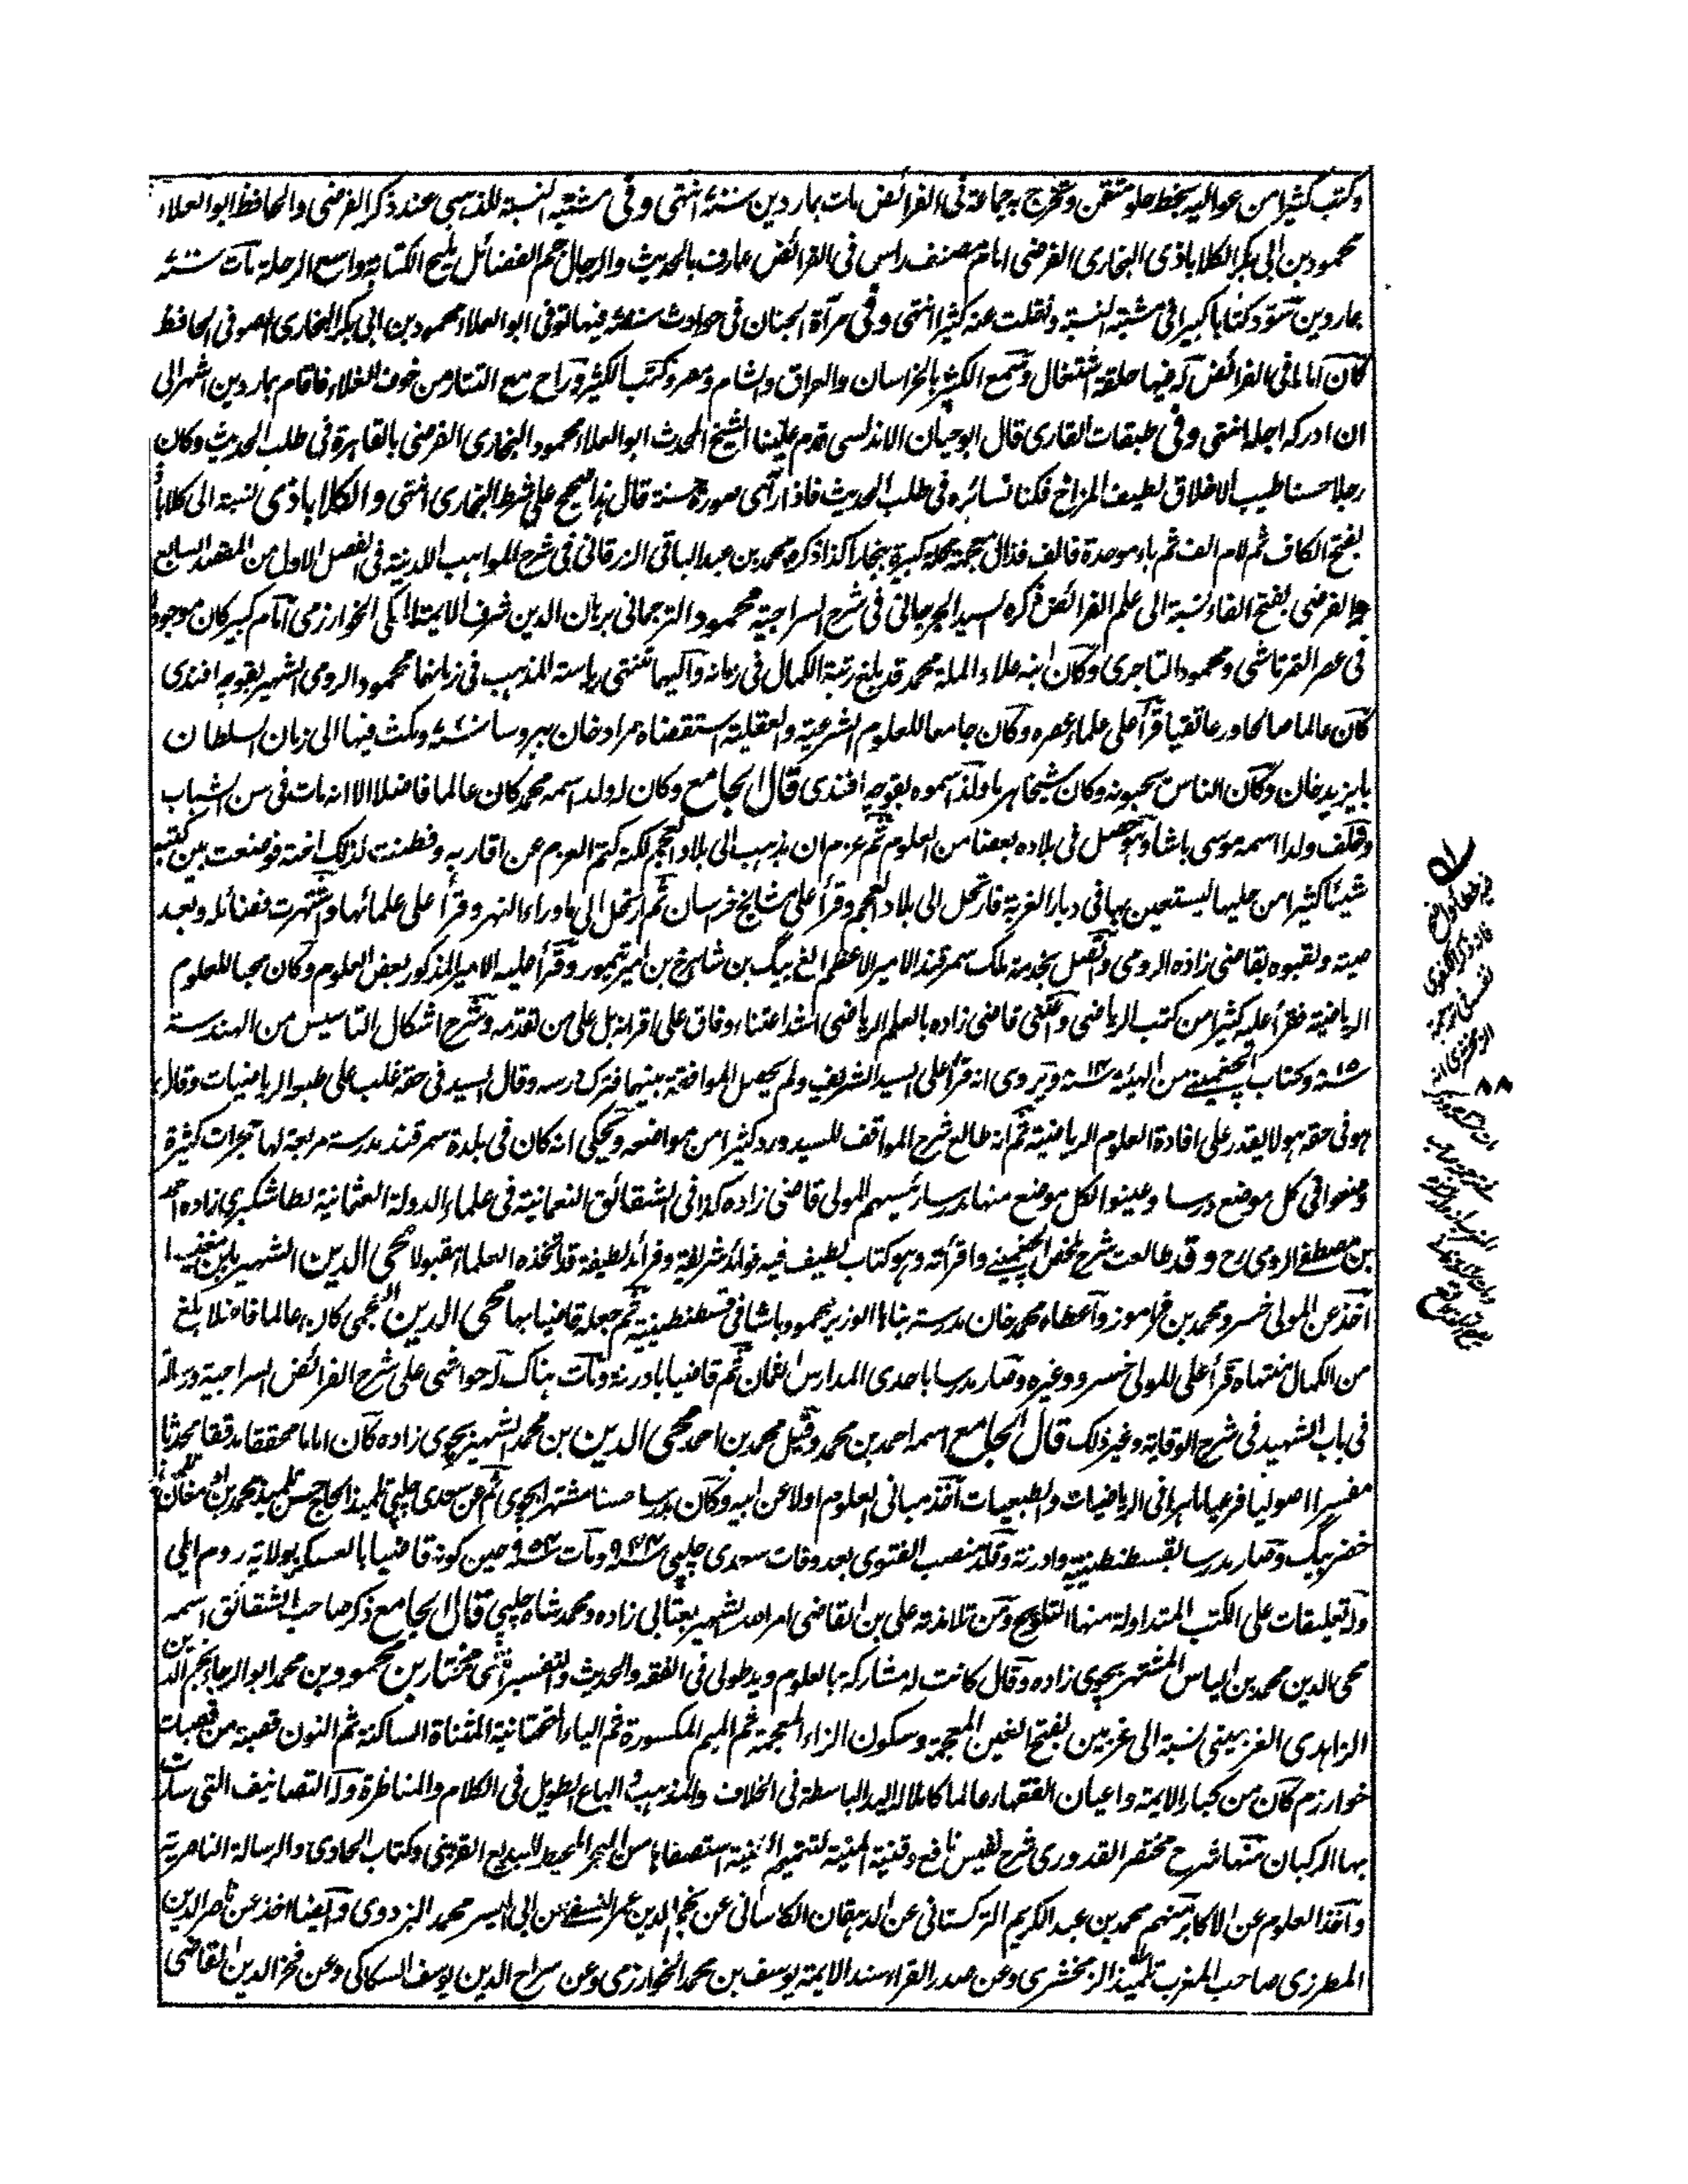 وكتب كثيرا من عواليه بخط حلو متقن وتخرج به جماعة في الفرائض مات بماردين سنة انتهى وفي مشتبه النسبة للذهبي عند ذكر الفرضي والحافظ ابو العلاء
محمود بن ابي بكر الكلاباذي البخاري الفرضي امام مصنف راس في الفرائض عارف بالحديث والرجال جم الفضائل مليح الكتابة واسع الرحلة مات سنة
بماردين سود كتابا كبيرا في مشتبه النسبة ونقلت عنه كثيرا انتهى وفي مرآة الجنان في حوادث سنة فيها توفي ابو العلاء محمود بن ابي بكر البخاري الصوفي الحافظ
كان اماما في الفرائض له فيها حلقة اشتغال وسمع الكثير بالخراسان والعراق والشام ومصر وكتب الكثير وراح مع التتار من خوف الغلاء فاقام بماردين اشهرا الى
ان ادركه اجله انتهى وفي طبقات القاري قال ابو حيان الاندلسي قدم علينا الشيخ المحدث ابو العلاء محمود البخاري الفرضي بالقاهرة في طلب الحديث وكان
رجلا حسنا طيب الاخلاق لطيف المزاج فكنا نسائره في طلب الحديث فاذا رآى صورة حسنة قال هذا صحيح على شرط البخاري انتهى والكلاباذي نسبة الى كلاباذ
بفتح الكاف ثم لام الف ثم باء موحدة فالف فذال معجمة محلة كبيرة ببخارا كذا ذكره محمد بن عبد الباقي الزرقاني في شرح المواهب اللدنية في الفصل الاول من المقصد السابع
والفرضي بفتح الفاء نسبة الى علم الفرائض ذكره السيد الجرجاني في شرح السراجية محمود الترجماني برهان الدين شرف الائمة المكي الخوارزمي امام كبير كان موجودا
في عصر التمرتاشي ومحمود التاجري وكان ابنه علاء الملة محمد قد بلغ رتبة الكمال في زمانه واليهما تنتهي رياسة المذهب في زمانهما محمود الرومي الشهير بقوجه افندي
كان عالما صالحا ورعا تقيا قرأ على علماء عصره وكان جامعا للعلوم الشرعية والعقلية استقضاه مراد خان ببروسا سنة ومكث فيها الى زمان السلطان
بايزيد خان وكان الناس يحبونه وكان شيخا هرما ولذا سموه بقوجه افندي قال الجامع وكان له ولد اسمه محمد كان عالما فاضلا الا انه مات في سن الشباب
وخلف ولدا اسمه موسى باشا وهو حصل في بلاده بعضا من العلوم ثم عزم ان يذهب الى بلاد العجم لكنه كتم العزم عن اقاربه وفطنت لذلك اخته فوضعت بين كتبه
شيئا كثيرا من حليها ليستعين بها في ديار الغربة فارتحل الى بلاد العجم وقرأ على مشايخ خراسان ثم ارتحل الى ماوراء النهر وقرأ على علمائها واشتهرت فضائله وبعد
صيته ولقبوه بقاضي زاده الرومي واتصل بخدمة ملك سمرقند الامير الاعظم الغ بيگ بن شاهرخ بن امير تيمور وقرأ عليه الامير المذكور بعض العلوم وكان محبا للعلوم
الرياضية فقرأ عليه كثيرا من كتب الرياضي واعتنى قاضي زاده بالعلم الرياضي اشد اعتناء وفاق على اقرانه بل على من تقدمه وشرح اشكال التاسيس من الهندسة
سنة ٨١٥ وكتاب الچغميني من الهيئة سنة ٨١٤ ويروى انه قرأ على السيد الشريف ولم يحصل الموافقة بينهما فترك درسه وقال السيد في حقه غلب على طبعه الرياضيات وقال
هو في حقه هو لا يقدر على افادة العلوم الرياضية ثم انه طالع شرح المواقف للسيد ورد كثيرا من مواضعه ويحكى انه كان في بلدة سمرقند مدرسة مربعة لها حجرات كثيرة
وضعوا في كل موضع درسا وعينوا لكل موضع منها مدرسا رئيسهم المولى قاضي زاده كذا في الشقائق النعمانية في علماء الدولة العثمانية لطاشكبري زاده احمد
بن مصطفى الرومي رح وقد طالعت شرح ملخص الچغميني واقرأته وهو كتاب لطيف فيه فوائد شريفة وفرائد لطيفة قد اتخذه العلماء مقبولا محي الدين الشهير بابن مغنيسا
اخذ عن المولى خسرو محمد بن فراموز واعطاه محمد خان مدرسة بناها الوزير محمود باشا في قسطنطينية ثم جعله قاضيا بها محي الدين العجمي كان عالما فاضلا بلغ
من الكمال منتهاه قرأ على المولى خسرو وغيره وصار مدرسا باحدى المدارس الثمان ثم قاضيا بادرنه ومات هناك له حواشي على شرح الفرائض السراجية ورسالة
في باب الشهيد في شرح الوقاية وغير ذلك قال الجامع اسمه احمد بن محمد وقيل محمد بن احمد محي الدين بن محمد الشهير بجوي زاده كان اماما محققا مدققا محدثا
مفسرا اصوليا فرعيا ماهرا في الرياضيات والطبيعيات اخذ مباني العلوم اولا عن ابيه وكان مدرسا حسنا مشتهرا بجوي ثم عن سعدي چلپي تلميذ الحاج حسن تلميذ محمد بن ادمغان تلميذ
خضر بيگ وصار مدرسا بقسطنطينية وادرنة وقلد منصب الفتوى بعد وفات سعدي چلپي سنة ٩٤٤ ومات سنة ٩٥٤ حين كونه قاضيا بالعسكر بولاية روم ايلي
وله تعليقات على الكتب المتداولة منها التلويح ومن تلامذته علي بن القاضي امر الله الشهير بعتابي زاده ومحمد شاه چلپي قال الجامع ذكر صاحب الشقائق اسمه
محي الدين محمد بن الياس المشتهر بجوي زاده وقال كانت له مشاركة بالعلوم ويد طولى في الفقه والحديث والتفسير انتهى مختار بن محمود بن محمد ابو الرجاء نجم الدين
الزاهدي الغزميني نسبة الى غزمين بفتح الغين المعجمة وسكون الزاء المعجمة ثم الميم المكسورة ثم الياء التحتانية المثناة الساكنة ثم النون قصبة من قصبات
خوارزم كان من كبار الائمة واعيان الفقهاء عالما كاملا له اليد الباسطة في الخلاف والمذهب والباع الطويل في الكلام والمناظرة وله التصانيف التي سارت
بها الركبان منها شرح مختصر القدوري شرح نفيس نافع وقنية المنية لتتميم الغنية استصفاها من البحر المحيط للبديع القزبني وكتاب الحاوي والرسالة الناصرية
واخذ العلوم عن الاكابر منهم محمد بن عبد الكريم التركستاني عن الدهقان الكاساني عن نجم الدين عمر النسفي عن ابي اليسر محمد البزدوي وايضا اخذ عن ناصر الدين
المطرزي صاحب المغرب تلميذ الزمخشري وعن صدر القراء سند الائمة يوسف بن محمد الخوارزمي وعن سراج الدين يوسف السكاكي وعن فخر الدين القاضي